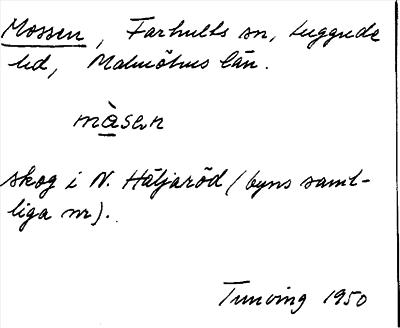 Mossen, Farhults sn, Luggude
hd, Malmöhus län.
màsen
skog i N. Häljaröd (byns samt-
liga nr).
Tuneving 1950